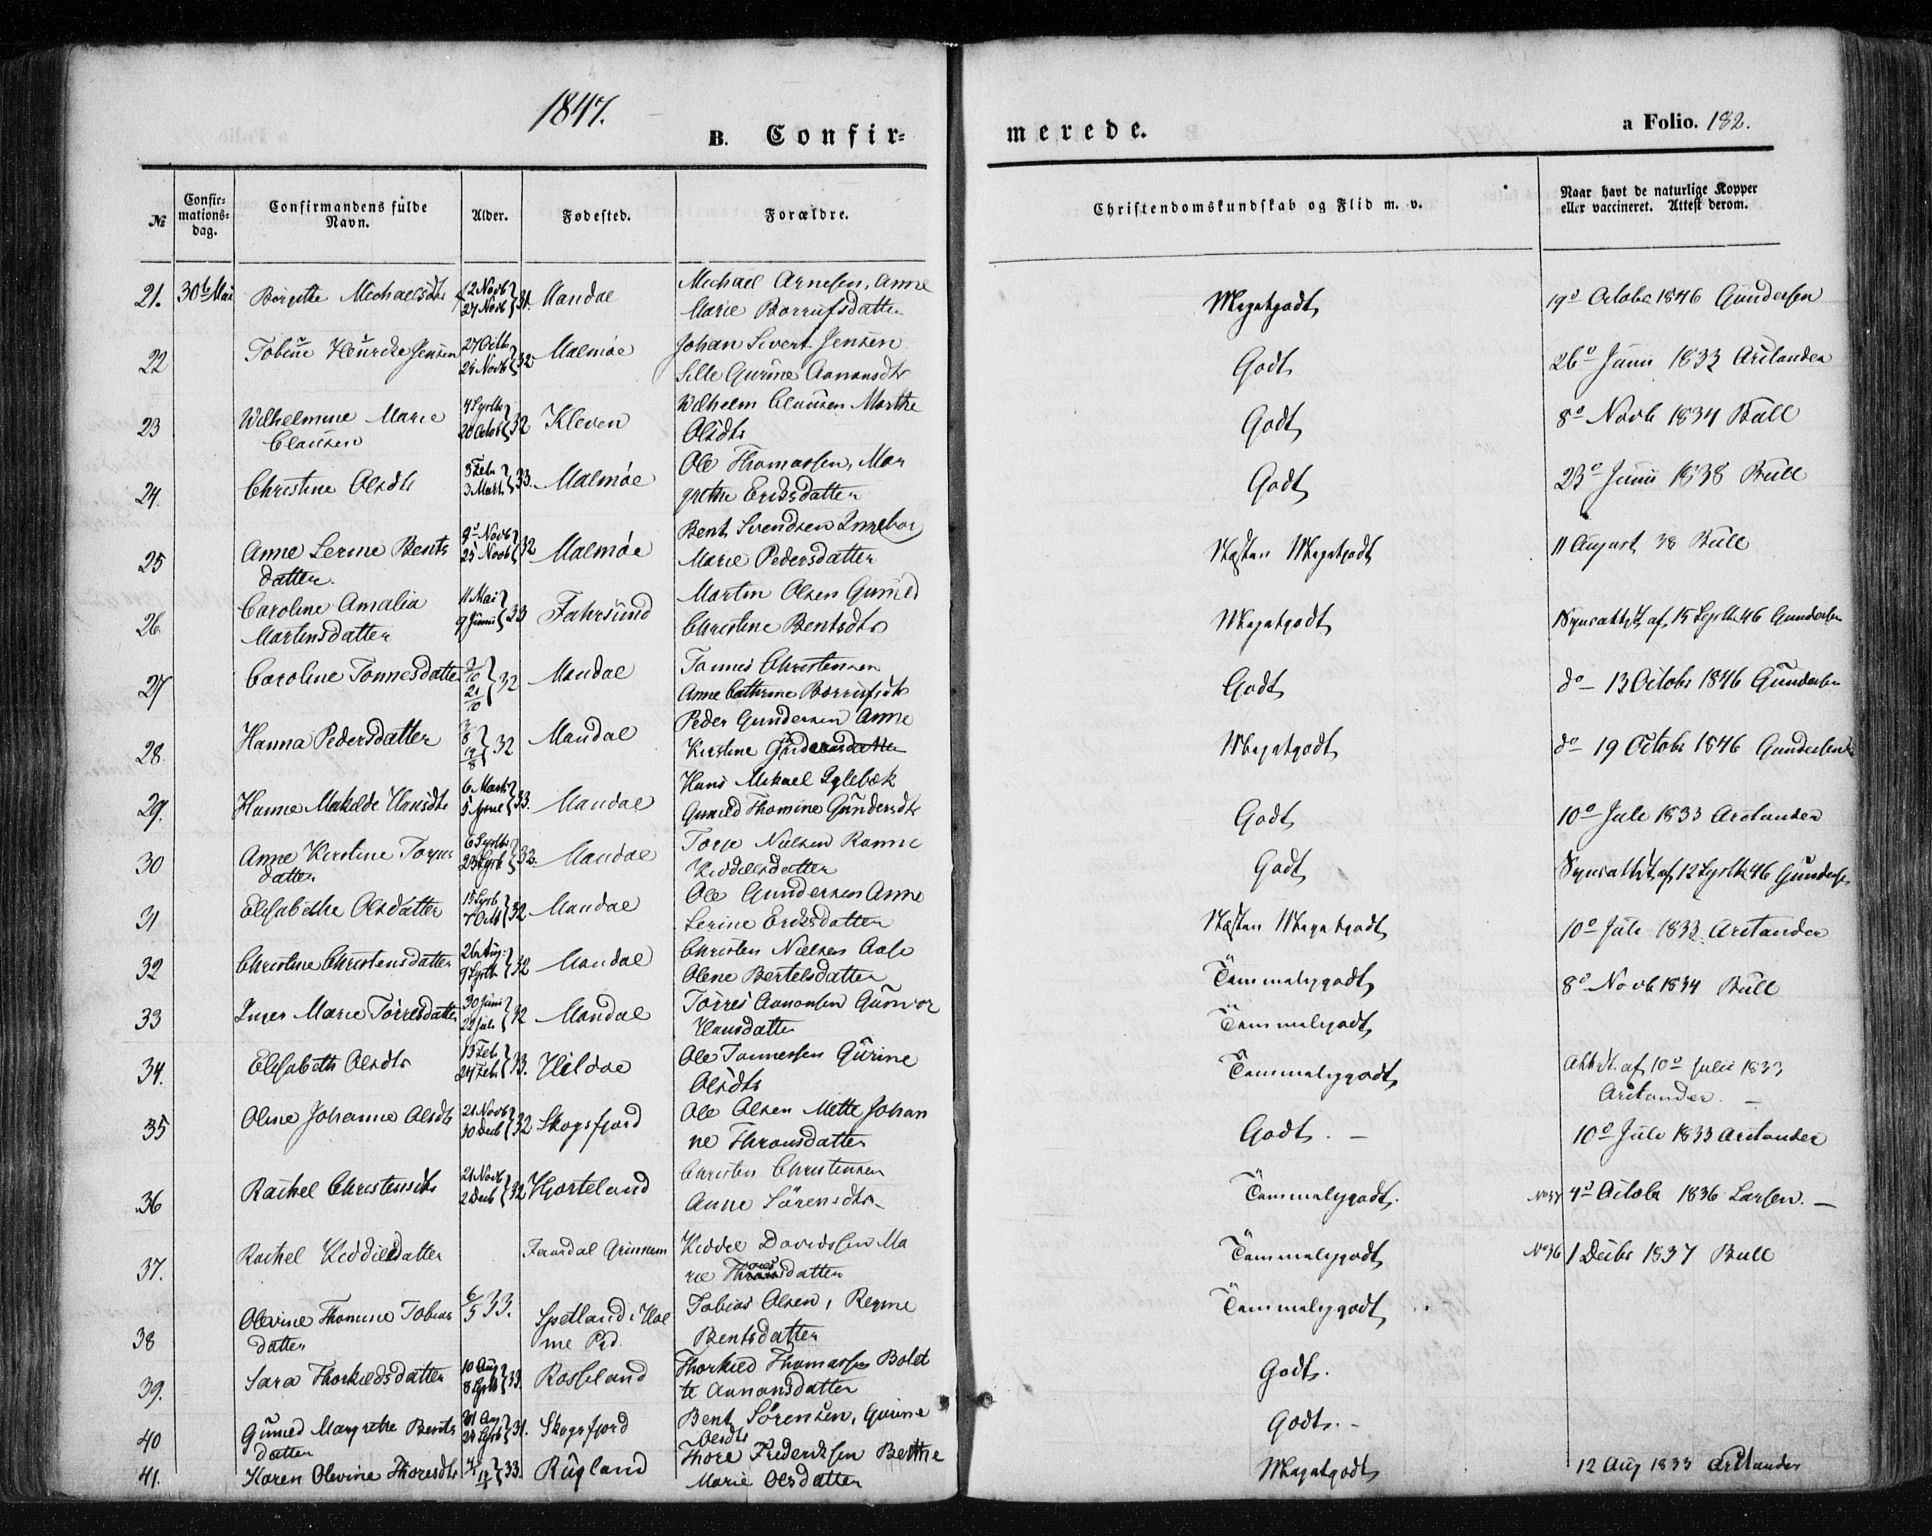 1847.
B. Confir-
merede.
a Folio. 182.
№
Confir-
mations-
dag.
Confirmandens fulde
Navn.
Alder.
Fødested.
Forældre.
Christendomskundskab og Flid m. v.
Naar havt de naturlige Kopper
eller vaccineret. Attest derom.
21. 30te Mai Birgitte Michaelsdtr 12 Novb 27 Novb 31. Mandal Michael Arnesen, Anne
Marie Borrufsdatter Megetgodt 19d Octobr 1846 Gundersen
22 Tobine Jensen 27 Octb 24 Novb 32 Malmøe Johan Sivert Jensen
Sille Gurine Aanonsdtr Godt 26d Juni 1833 Arctander
23 Wilhelmine Marie
Clausen 4 Septb 20 Octob 32 Kleven Wilhelm Clausen Marthe
Olsdtr Godt 8d Novb 1834 Bull
24. Christine Olsdtr 8 Feb. 3 Mart. 33. Malmøe Ole Thomassen, Mar
grethe Eriksdatter Godt 23d Juni 1838 Bull
25 Anne Serine Bents
datter. 9d Novb 25 Novb 32 Malmøe Bent Svendsen Ingebor
Marie Pedersdatter Næsten Megetgodt 11 August 38 Bull
26. Caroline Amalia
Martinsdatter 11 Mai 9 Junii 33 Fahrsund Martin Olsen Gunild
Christine Bentsdtr Megetgodt Synsattest af 15 Septb 46 Gundersen
27 Caroline Tønnesdatter 21/10 32 Mandal Tønnes Christensen
Anne Cathrine Borrufsdtr Godt do 13 Octobr 1846 Gundersen
28. Hanna Pedersdatter 19/8 32 Mandal Peder Gundersen Anne
Kirstine Megetgodt do 19 Octobr 1846 Gundersen
29. Hanne Matilde Hansdtr 6 Marts 5 April 33. Mandal Hans Mikael Iglebæk
Gunild Thomine Gundersdtr Godt 10d Juli 1833 Arctander
30 Anne Kirstine Torjus
datter 6 Septb 23 Septb 32. Mandal Torju Nielsen Ranne
Keddelsdatter Godt Synsattest af 12 Septb 46 Gundersen
31 Elisabethe Olsdatter 15 Septb 7 Octb 32 Mandal Ole Gundersen Anne
Serine Eriksdatter Næsten Megetgodt 10d Juli 1833. Arctander
32 Christine Christensdatter 26 Aug: 9 Septb 32 Mandal Christen Nielsen Aase
Olene Bertelsdatter Temmeligodt 8d Novb 1834 Bull
33 Inger Marie Torresdatter 30 Juni 22 Juli 32 Mandal Torres Aanonsen Gunvor
Hansdatter Temmeligodt
34. Elisabeth Olsdtr 13 Feb. 24 Feb. 33. Hildae Ole Tønnessen Gurine
Olsdtr Temmeliggodt Attst. af 10d Julii 1833
Arctander. —
35 Oline Johanne Olsdtr 21 Novb 30 Decb 32 Skogsfjord Ole Olsen Mette Johan
ne Thronsdatter Godt. — 10d Juli 1833 Arctander
36 Rachel Christensdtr 21 Novb 2 Decb 32 Hjorteland Christen Christensen
Anne Sörensdtr. Temmeliggodt. No 37 4d Octobr 1836 Larsen. —
37. Rachel Keddelsdatter Faardal Grinnem Keddel Davidssen Ma
rie datter Temmeliggodt No 36 1 Decbr 1837 Bull
38 Olevine Thomine Tobias
datter 6/5 33. Spetland i Hol
me Pd. Tobias Olsen, Regine
Bentsdatter Temmeliggodt
39. Sara Thorkildsdatter 10 Aug 8 Septb 33. Rosseland Thorkild Thomassen Bolet
te Aanonsdatter Godt.
40 Gunild Margrethe Bents
datter 31 Aug 24 Septb 31. Skogsfjord Bent Sørensen, Gurine
Olsdtr Godt. —
41. Karen Olevine Thoresdtr 33. Rugland Thore Frederiksen Berthe
Marie Olsdatter Megetgodt 12 Aug 1833 Arctander